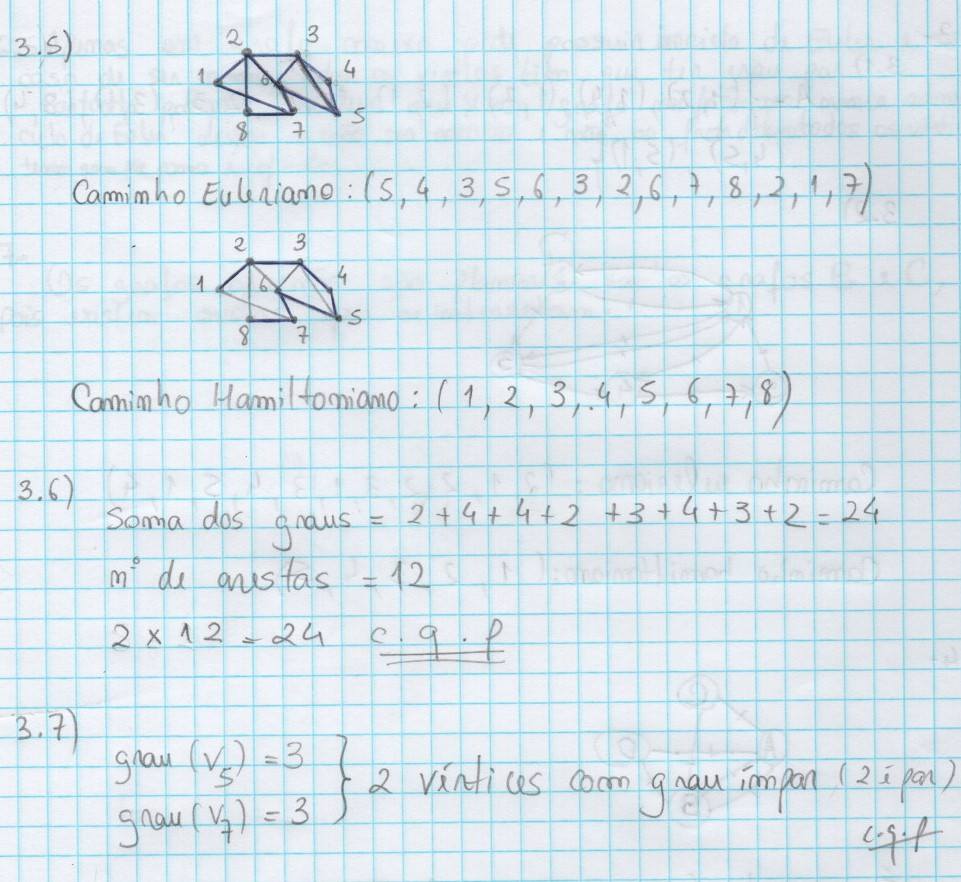 3.5)
2 3
1 6 4
8 7 5
Caminho Euleriano : (5, 4, 3, 5, 6, 3, 2, 6, 7, 8, 2, 1, 7)
2 3
1 6 4
8 7 5
Caminho Hamiltoniano : ( 1, 2, 3, 4, 5, 6, 7, 8)
3.6)
Soma dos graus = 2 + 4 + 4 + 2 + 3 + 4 + 3 + 2 = 24
nº de arestas = 12
2 x 12 = 24 c.q.p
3.7)
grau (V5) = 3
2 vértices com grau ímpar (2 é par)
grau (V7) = 3
c.q.p